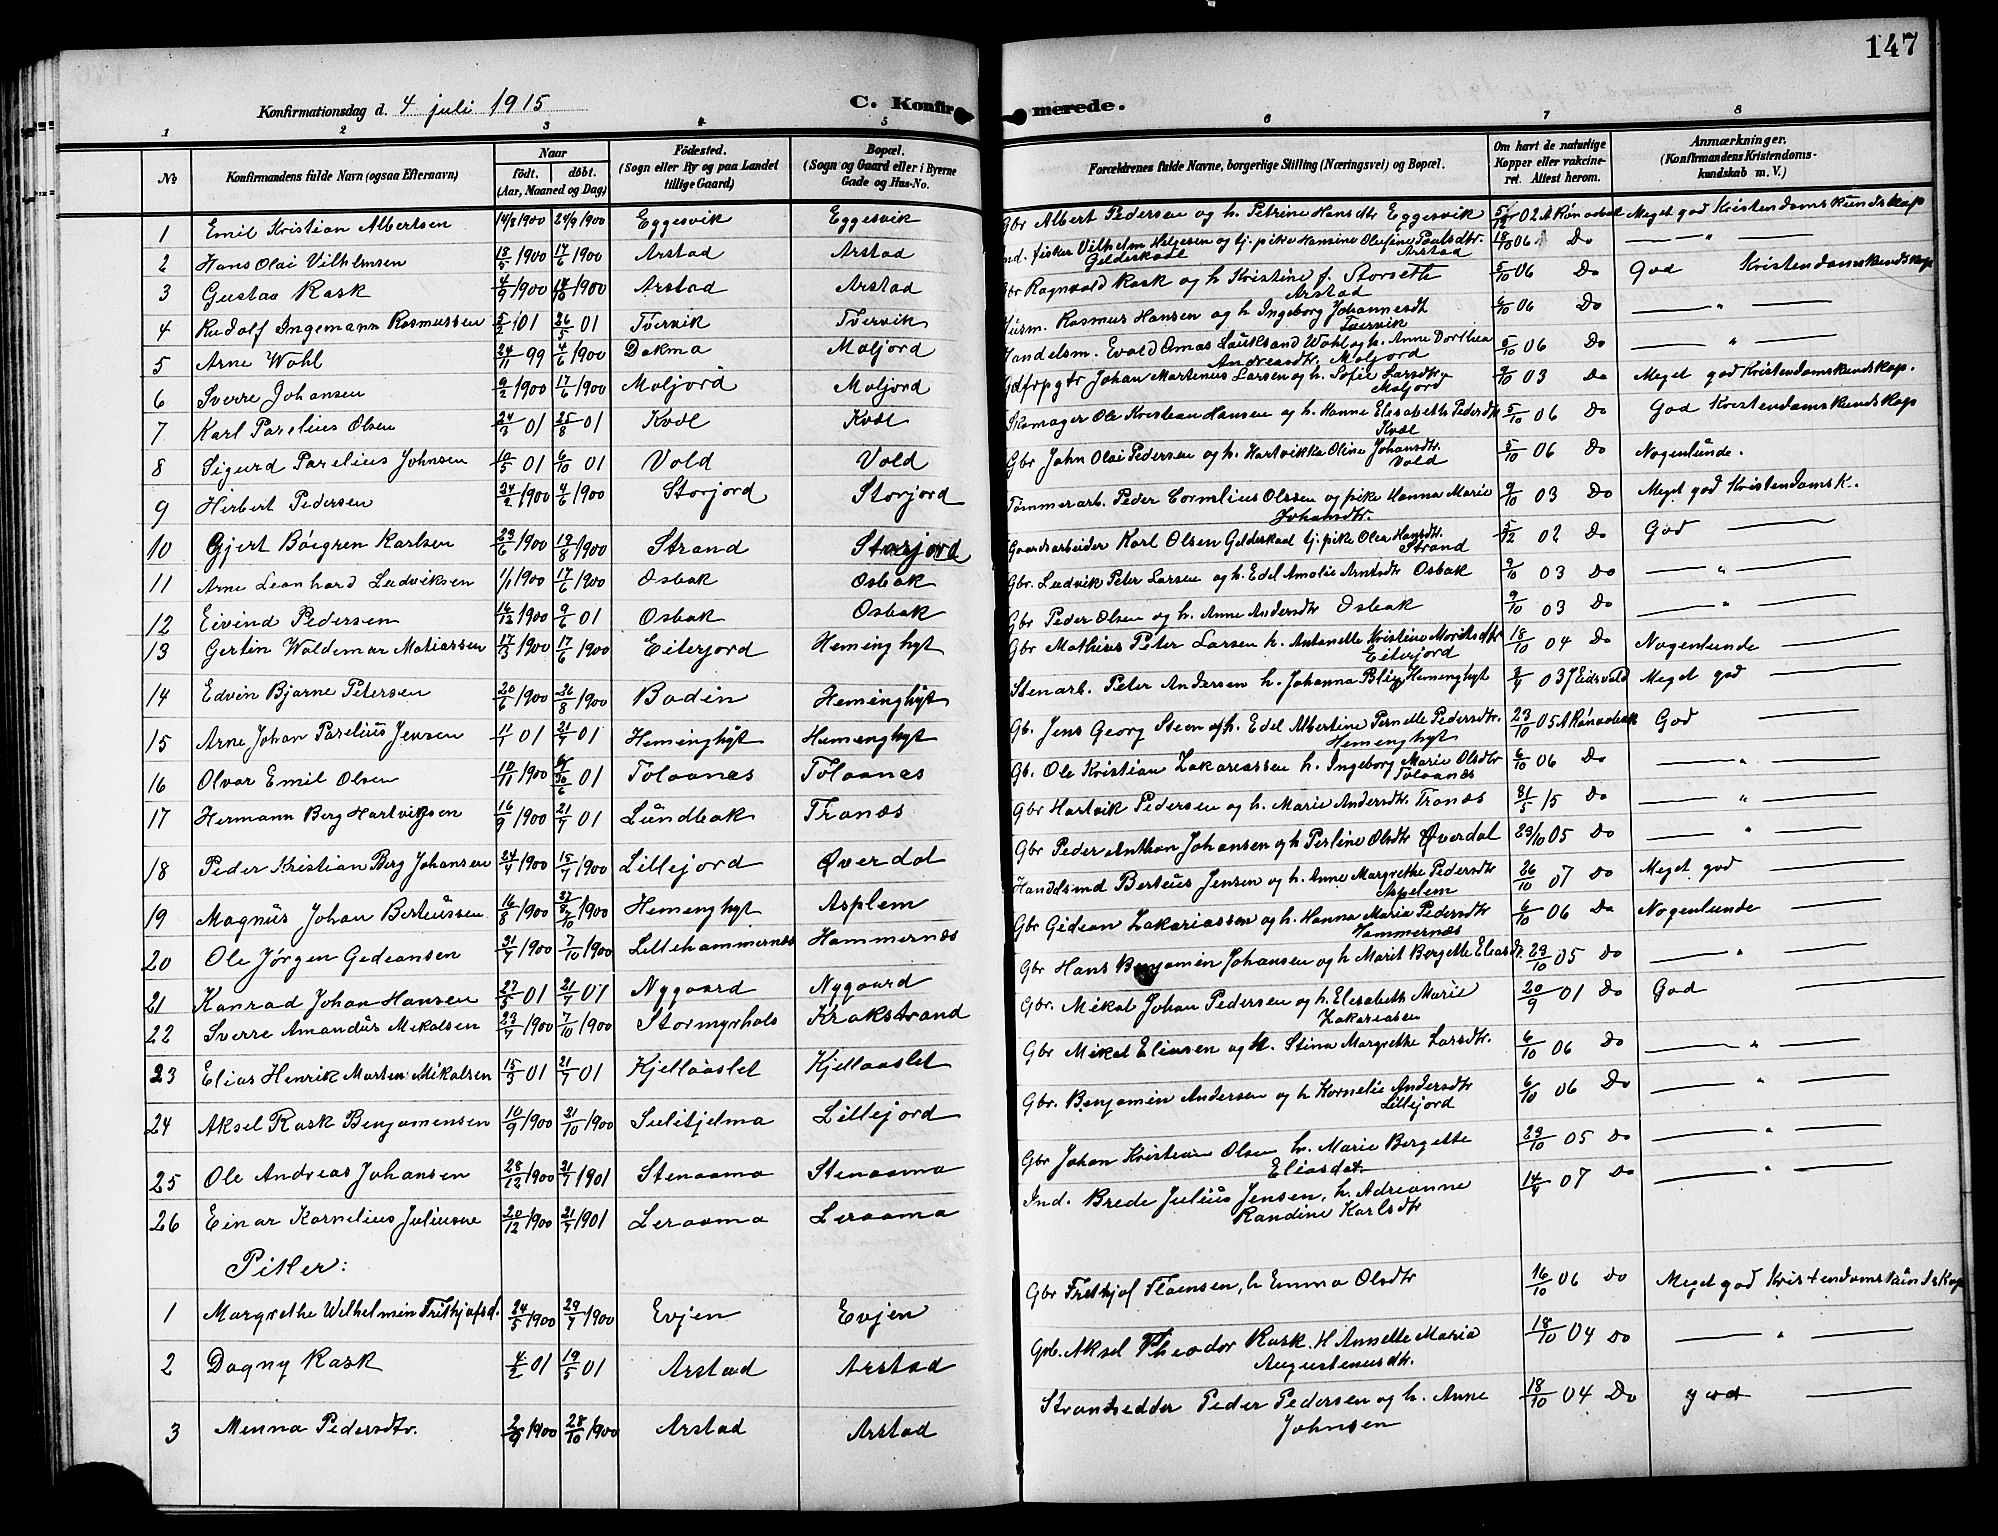 147
Konfirmationsdag d. 4 juli 1915
C. Konfirmerede.
1 2 3 4 5 6 7 8
No
Konfirmandens fulde Navn (ogsaa Efternavn)
Naar
födt. döbt.
(Aar, Maaned og Dag)
Födested.
(Sogn eller By og paa Landet
tillige Gaard)
Bopæl.
(Sogn og Gaard eller i Byerne
Gade og Hus-No.
Forældrenes fulde Navne, borgerlige Stilling (Næringsvei) og Bopæl.
Om havt de naturlige
Kopper eller vakcine-
ret. Attest herom.
Anmærkninger.
(Konfirmandens Kristendoms-
kundskab m. V.)
1 Emil Kristian Albertsen 14/8 1900 24/9 1900 Eggesvik Eggesvik Gbr Albert Pedersen og h. Petrine Hansdtr Eggesvik 5/12 02 Meget god Kristendomskundskap
2 Hans Olai Vilhelmsen 18/5 1900 17/6 1900 Arstad Arstad Ind. fisker Vilhelm Helgesen og tj. pike Hansine Olufine Paulsdtr. Gildeskaal Arstad 18/10 06 Do — " —
3 Gustav Rask 4/9 1900 14/10 1900 Arstad Arstad Gbr Ragnvald Rask og h Kristine f. Storseth Arstad 5/10 06 Do God Kristendomskundskap
4 Rudolf Ingemann Rasmussen 5/2 01 26/5 01 Tvervik Tvervik Husm. Rasmus Hansen og h Ingeborg Johannesdt Tvervik 6/10 06 Do — " —
5 Arne Wahl 24/11 99 4/6 1900 Dokmo Moljord Handelsm. Evald Omas Lauksand Wahl og h. Anne Dorthea Andreasdtr. Moljord 5/10 06 Do — " —
6 Sverre Johansen 9/2 1900 17/6 1900 Moljord Moljord Johan Martenus Larsen og h. Sofie Larsdtr Moljord 9/10 03 Do Meget god Kristendomskundskap.
7 Karl Parelius Olsen 24/3 01 25/8 01 Kvæl Kvæl Skomager Ole Kristian Hansen og h. Hanne Elesabeth Pedersdtr Kvæl 5/10 06 Do God Kristendomskundskap
8 Sigurd Parelius Johnsen 10/5 01 6/10 01 Vold Vold Gbr John Olai Pedersen og h. Hartvikka Oline Johansdtr. Vold 5/10 06 Do Nogenlunde.
9 Herbert Pedersen 24/2 1900 4/6 1900 Storjord Storjord Tømmerarb. Peder Cornelius Olssen og pike Hanna Marie Johansdtr. 9/10 03 Do Meget god Kristendomsk.
10 Gjert Böegren Karlsen 23/6 1900 19/8 1900 Strand Storjord Gaardsarbeider Karl Olsen Gildeskaal tj. pike Olea Hansdtr. Strand 5/12 02 Do God —
11 Arne Leonhard Ludviksen 1/1 1900 17/6 1900 Osbak Osbak Gbr. Ludvik Peter Larsen og h. Edel Amalie Arntsdtr Osbak 9/10 03 Do — " —
12 Eivind Pedersen 16/12 1900 9/6 01 Osbak Osbak Gbr Peder Olsen og h. Anne Andersdtr Osbak 9/10 03 Do — " —
13 Gertin Waldemar Matiassen 17/3 1900 17/6 1900 Eiterjord Heminghyt Gbr Mathias Peter Larsen h. Antonette Kristine Moritsdtr Eiterjord 18/10 04 Do Nogenlunde —
14 Edvin Bjarne Petersen 20/6 1900 26/8 1900 Bodin Heminghyt Stenarb. Peter Andersen h. Johanna Blix Hemenghyt 03 J Eidsvold Meget god —
15 Arne Johan Parelius Jensen 11/1 01 21/7 01 Hemenghyt Hemenghyt Gb. Jens Georg Steen og h. Edel Albertine Pernelle Pedersdtr. Hemenghyt 23/10 05 God —
16 Olvar Emil Olsen 10/11 1900 30/6 01 Tolaanes Tolaanes Gb. Ole Kristian Zakariassen h. Ingeborg Marie Olsdtr Tolaanes 6/10 06 Do — " —
17 Hermann Berg Hartviksen 16/9 1900 21/7 01 Lundbak Tranæs Gbr Hartvik Pedersen og h. Marie Andersdtr. Tranæs 31/5 15 Do — " —
18 Peder Kristian Berg Johansen 24/4 1900 15/7 1900 Lillejord Øverdal Gbr Peder Anthon Johansen og h Perline Olsdtr Øverdal 23/10 05 Do — " —
19 Magnus Johan Berteussen 16/8 1900 7/10 1900 Hemenghyt Asplem Handelsmd Berteus Jensen og h. Anne Margrethe Pedersdtr Aspelem 26/10 07 Do Meget god —
20 Ole Jørgen Gedeonsen 31/7 1900 7/10 1900 Lillehammernes Hammernæs Gbr Gideon Zakariassen og h. Hanna Maria Pedersdtr Hammernæs 6/10 06 Do Nogenlunde —
21 Konrad Johan Hansen 27/5 01 21/7 01 Nygaard Nygaard Gbr Hans Benjamin Johansen og h Marit Bergette Eliasdtr. 23/10 05 Do — " —
22 Sverre Amandus Mekalsen 23/7 1900 7/10 1900 Stormyrhals Krokstrand Gbr. Mikal Johan Pedersen og h. Elesabeth Marie Zakariasen 20/9 01 Do God
23 Elias Henrik Morten Mikalsen 15/3 01 21/7 01 Kjellaaslet Kjellaaslet Gbr Mikal Eliasen og h. Stina Margrethe Larsdtr. 6/10 06 Do — " —
24 Aksel Rask Benjamensen 10/9 1900 21/10 1900 Sulitjelma Lillejord Gbr. Benjamin Andersen og h Kornelie Andersdtr Lillejord 6/10 06 Do — " —
25 Ole Andreas Johansen 28/12 1900 21/7 1901 Stenaamo Stenaamo Gbr Johan Kristian Olsen h. Marie Bergette Eliasdatr 23/10 05 Do — " —
26 Einar Kornelius Juliusen 20/12 1900 21/7 1901 Leraamo Leraamo Ind. Brede Julius Jensen, h. Adrianne Randine Karlsdtr 14/4 07 Do — " —
Piker:
1 Margrethe Wilhelmin Frithjofsd. 24/5 1900 29/7 1900 Evjen Evjen Gbr Frithjof Floensen, h Emma Olsdtr 16/10 06 Do Meget god Kristendomskundskap
2 Dagny Rask 4/2 01 19/5 01 Arstad Arstad Gb. Aksel Theodor Rask. H Annette Maria Augustenusdtr. 18/10 04 Do — " —
3 Menna Pedersdtr. 2/9 1900 28/10 1900 Arstad Arstad Strandsedder Peder Pedersen og h. Anne Johnsen 18/10 04 Do god —